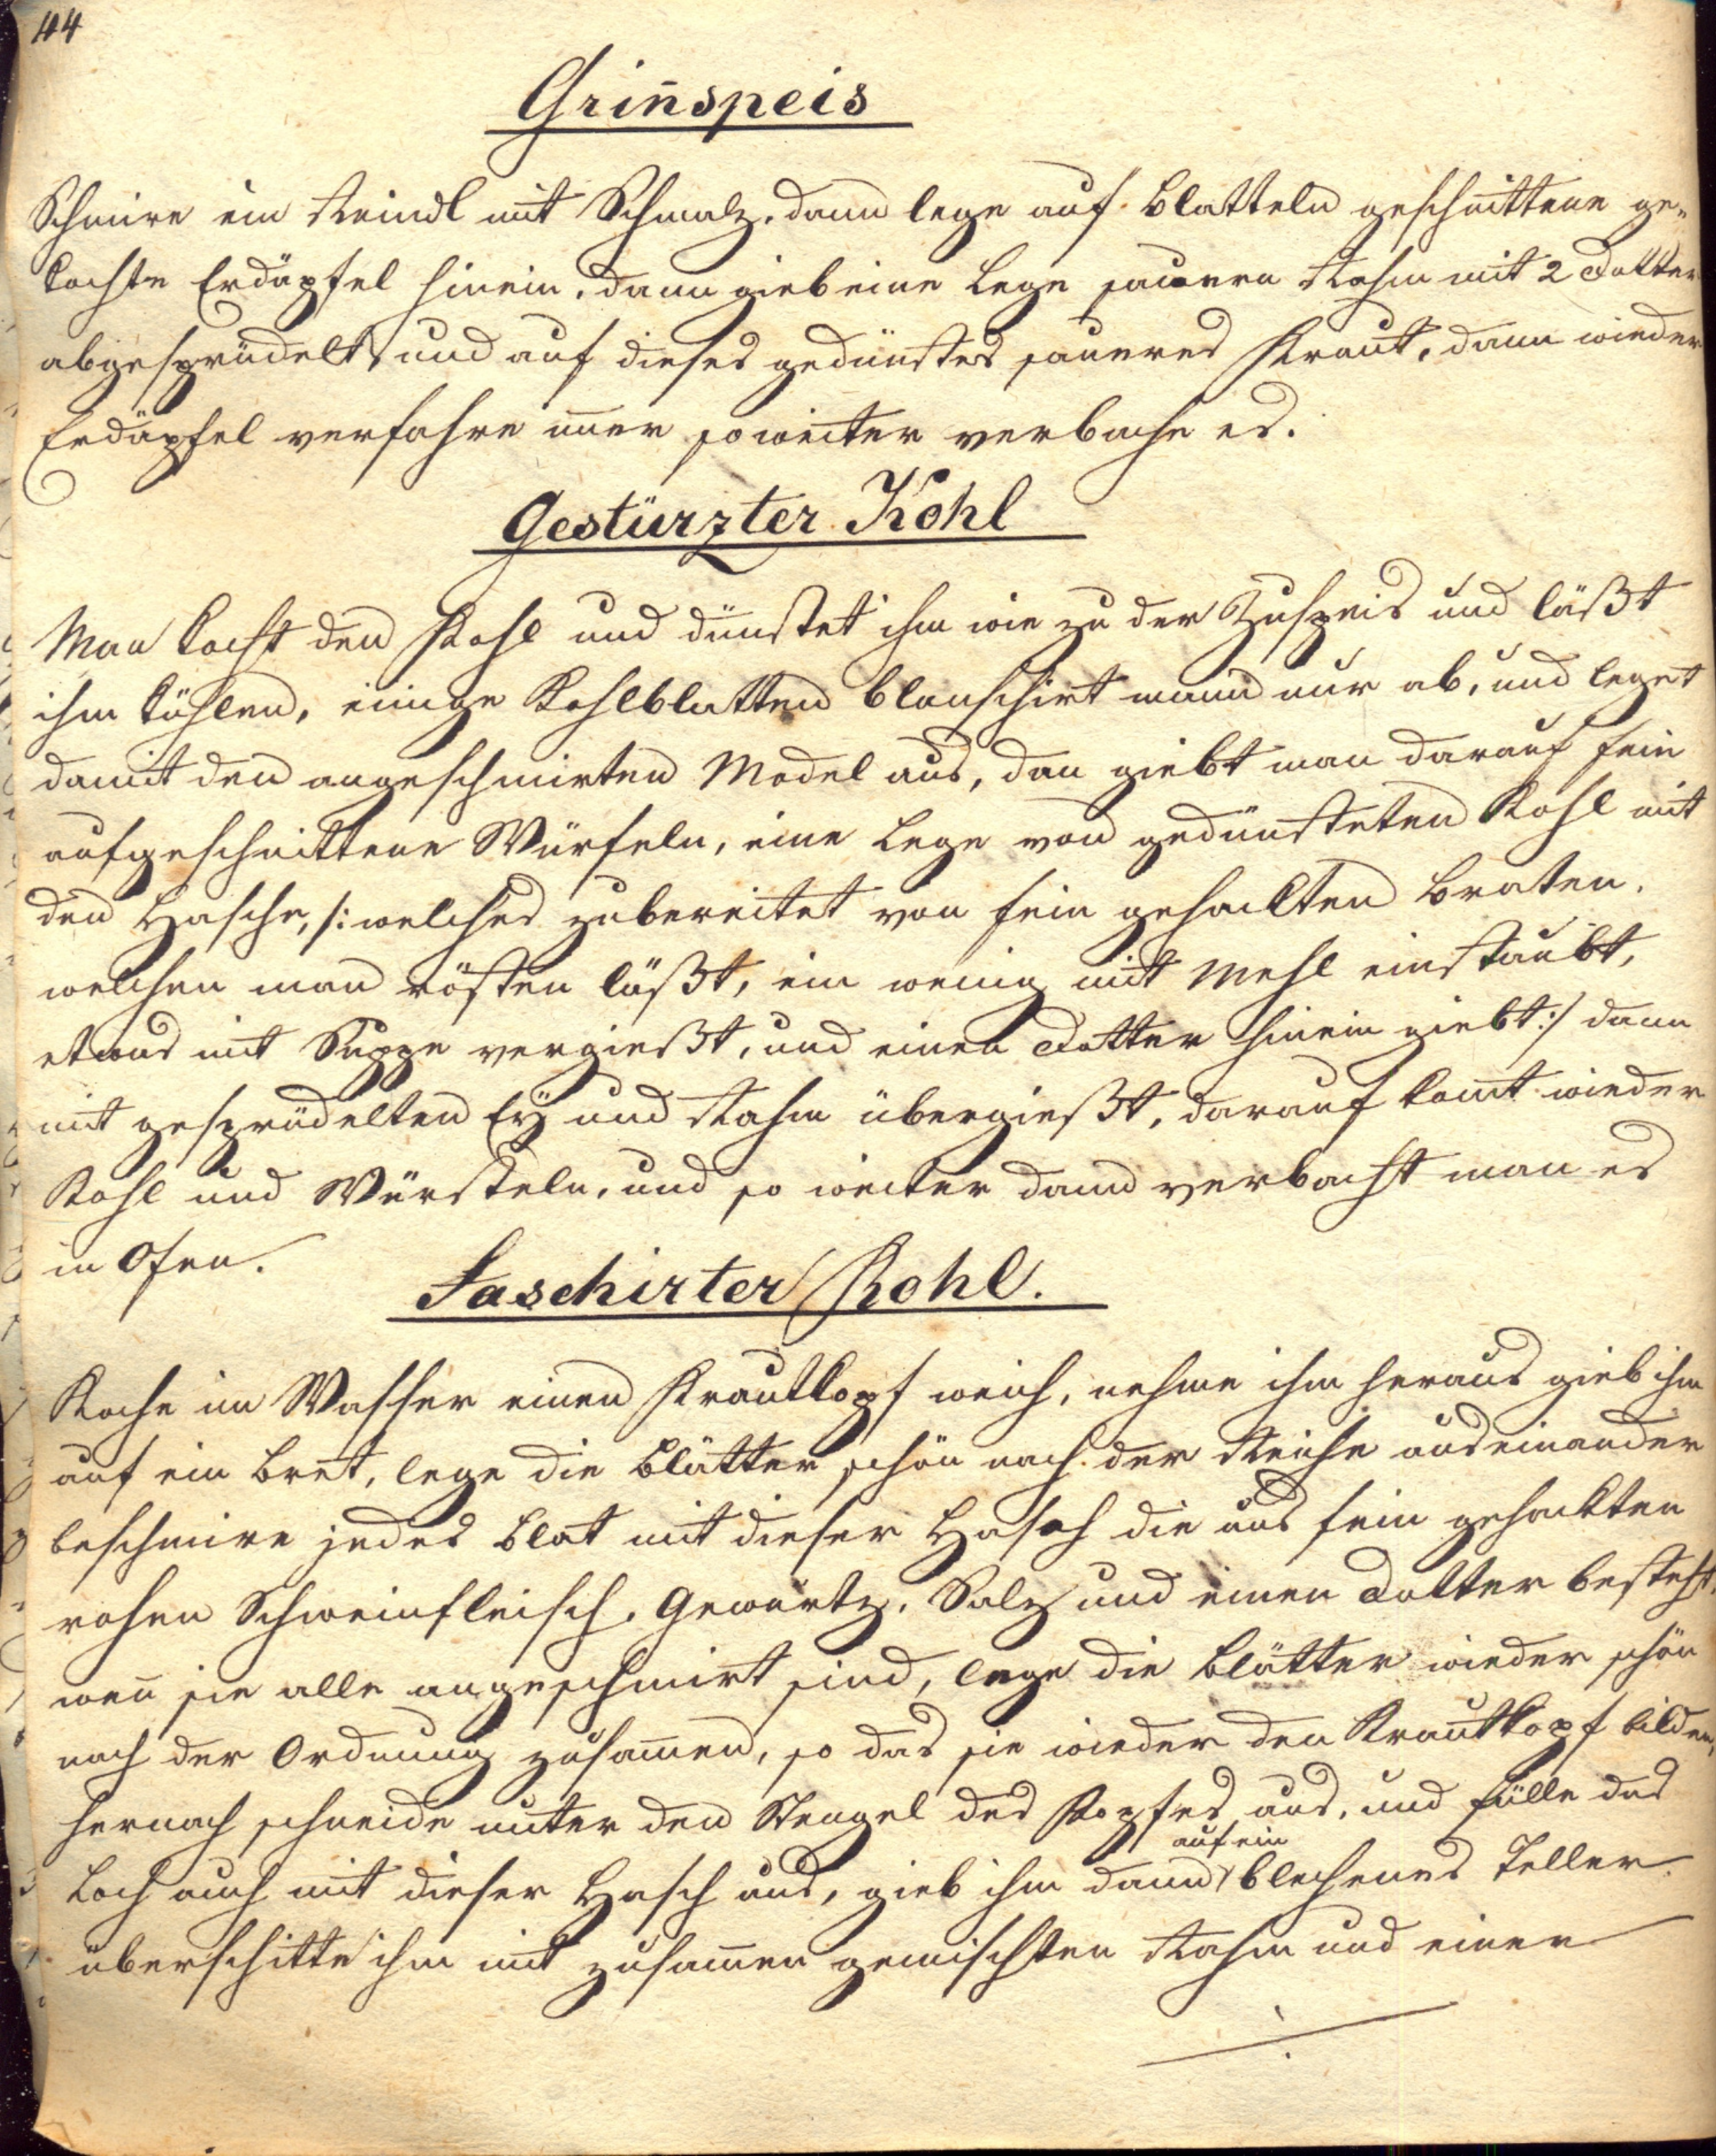 44
Grin̄speis
Schmire ein Reindl mit Schmalz, dann lege auf Blatteln geschnittene ge-
kochte Erdäpfel hinein, dann gieb eine Lege sauern Rahm mit 2 Dotter
abgesprüdelt, und auf dieses gedünstes saueres Kraut, dann wieder
Erdäpfel verfahre im̄er so weiter verbache es.
Gestürzter Kohl
Man kocht den Kohl und dünstet ihm wie zu der Zuspeis und läßt
ihm kühlen, einige Kohlblatten blanschirt mann nur ab, und leget
damit den angeschmirten Model aus, dan giebt man darauf fein
aufgeschnittene Würfeln, eine Lege von gedünsteten Kohl mit
den Hasche, /: welches zubereitet von fein gehackten Braten,
welchen man rösten läßt, ein wenig mit Mehl einstaubt,
etwas mit Suppe vergießt, und einen Dotter hinein giebt :/ dann
mit gesprüdelten Eÿ und Rahm übergießt, darauf kom̄t wieder
Kohl und Würsteln, und so weiter dann verbacht man es
in Ofen.
Faschirter Kohl.
Koche im Wasser einen Krautkopf weich, nehme ihm heraus gieb ihm
auf ein Bret, lege die Blätter schön nach der Reihe auseinander
beschmire jedes Blat mit dieser Hasch die aus fein gehackten
rohen Schweinfleisch, Gewürtz, Salz und einen Dotter besteht,
wen̄ sie alle angeschmirt sind, lege die Blätter wieder schön
nach der Ordnung zusam̄en, so das sie wieder den Krautkopf bilden,
hernach schneide unter den Stengel des Kopfes aus, und fülle das
auf ein
Loch auch mit dieser Hasch aus, gieb ihm dann blechenes Teller
überschitte ihm mit zusam̄en gemischten Rahm und einen